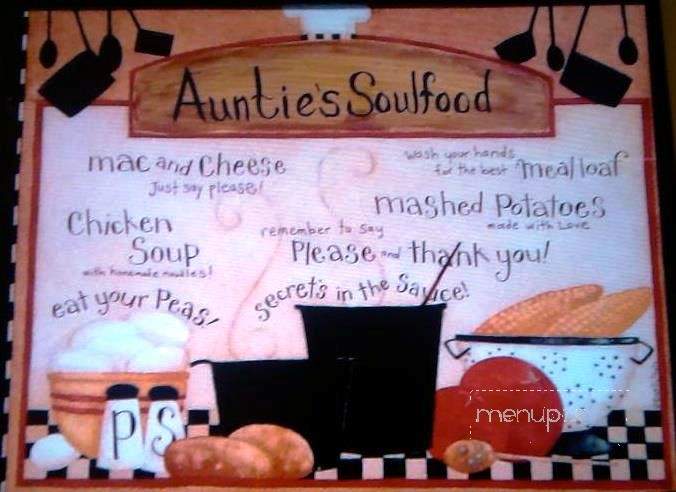 Auntie's Soulfood
mac and cheese
Just say please!
wash your hands
for the best meatloaf
mashed Potatoes
made with Love
Chicken
Soup
with homemade noodles!
remember to say
Please and thank you!
eat your Peas!
secret's in the Sauce!
P S
menup